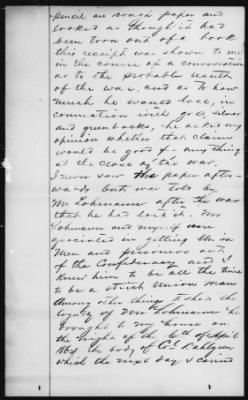 pencil on rough paper and
looked as though it had
been torn out of a book
this receipt was shown to me
in the course of a conversation
as to the probable result
of the war, and as to how
much he would lose, in
connection with gold silver
and greenbacks. he asked my
opinion whether that claim
would be good for any thing
at the close of the war.
I never saw the paper after-
wards but was told by
Mr Lohmann after the war
that he had lost it. Mr
Lohmann and myself were
associated in getting Union
Men and prisoners out
of the Confederacy and I
knew him to be all the time
to be a strict Union man
Among other things to show the
loyalty of Mr Lohmann he
brought to my house on
the night of the 6th of April
1864 the body of Col Dahlgren
which the next day I carried